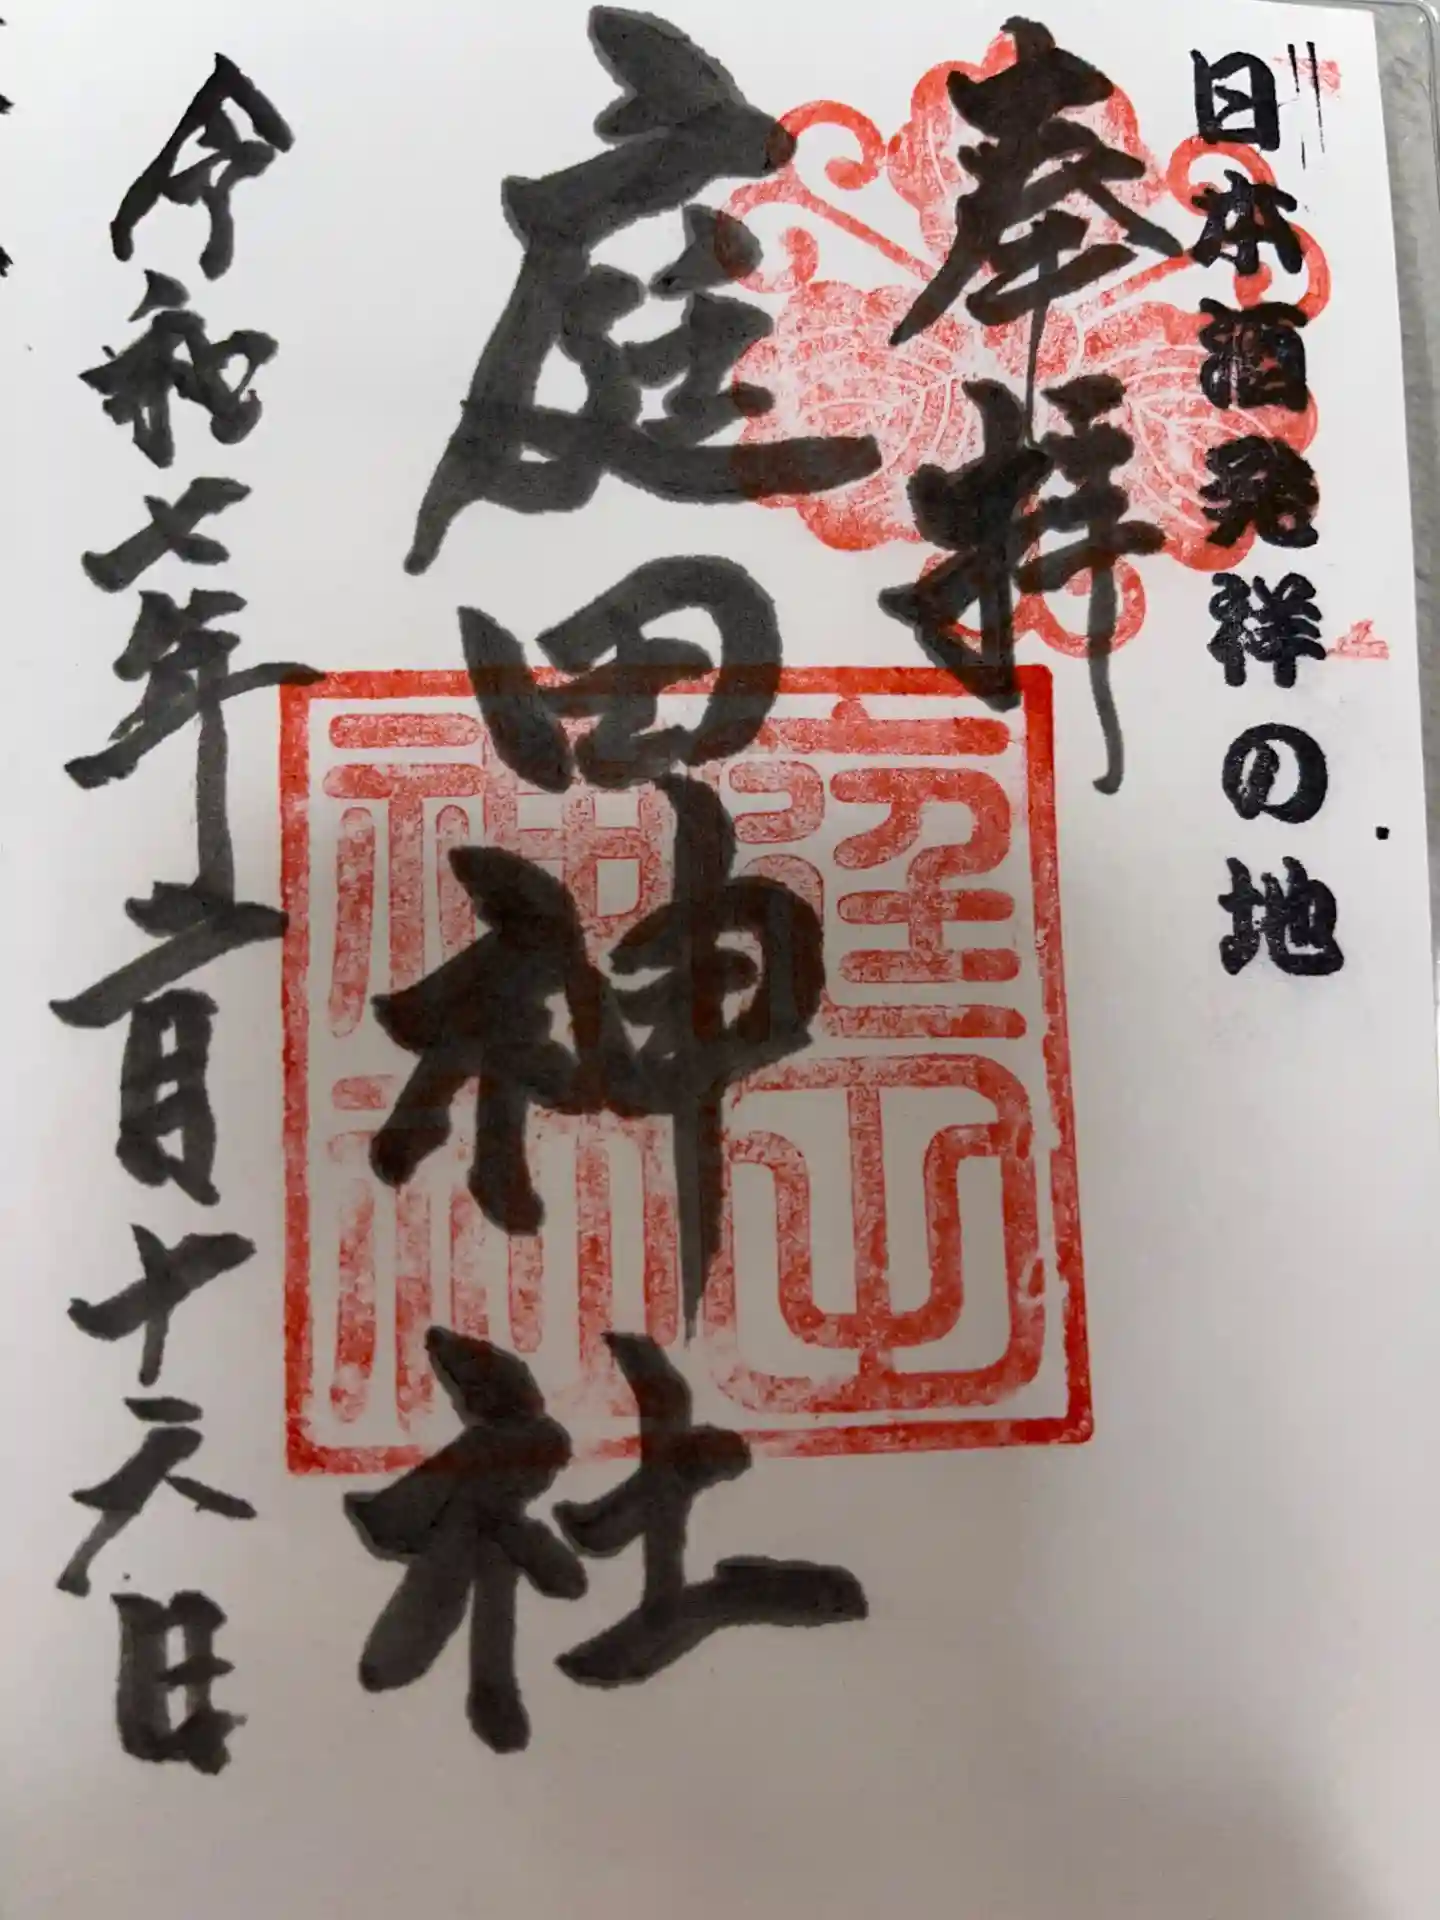 日本酒発祥の地
奉拝
庭田神社
令和七年二月十六日